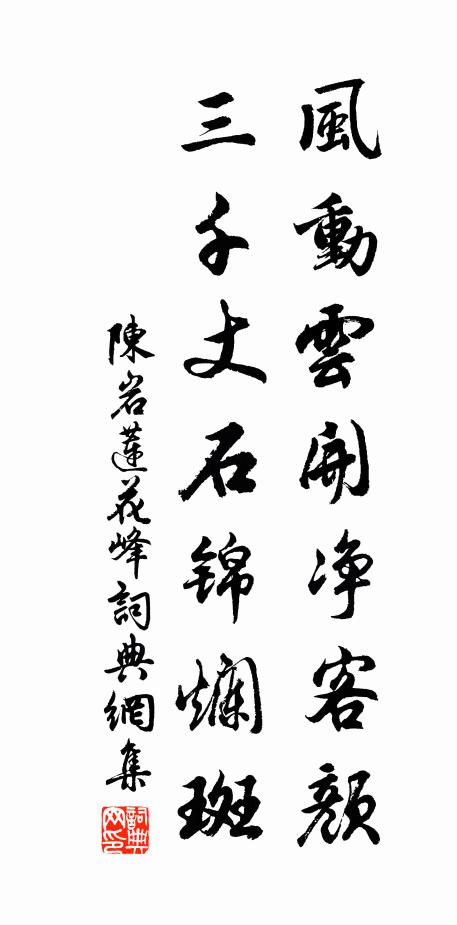 風動雲開净客顏
三千丈石锦斕斑
陳岩蓮花峰詞典網集
詞典网印